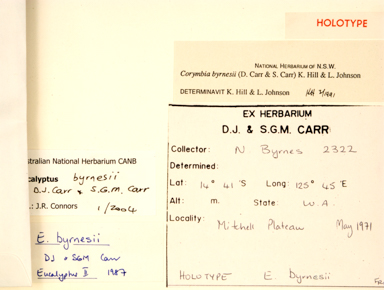 HOLOTYPE
NATIONAL HERBARIUM OF N.S.W.
Corymbia byrnesii (D. Carr & S. Carr) K. Hill & L. Johnson
DETERMINAVIT K. Hill & L. Johnson KH 2/1991
EX HERBARIUM
D.J. & S.G.M. CARR
Collector: N Byrnes 2322
Determined:
Lat: 14° 41 'S Long: 125° 45 'E
Alt: m. State: W.A.
Locality:
Mitchell Plateau May 1971
HOLOTYPE E. byrnesii
stralian National Herbarium CANB
calyptus byrnesii
D.J. Carr & S.G.M. Carr
.: J.R. Connors 1/2004
E. byrnesii
DJ & SGM Carr
Eucalyptus II 1987